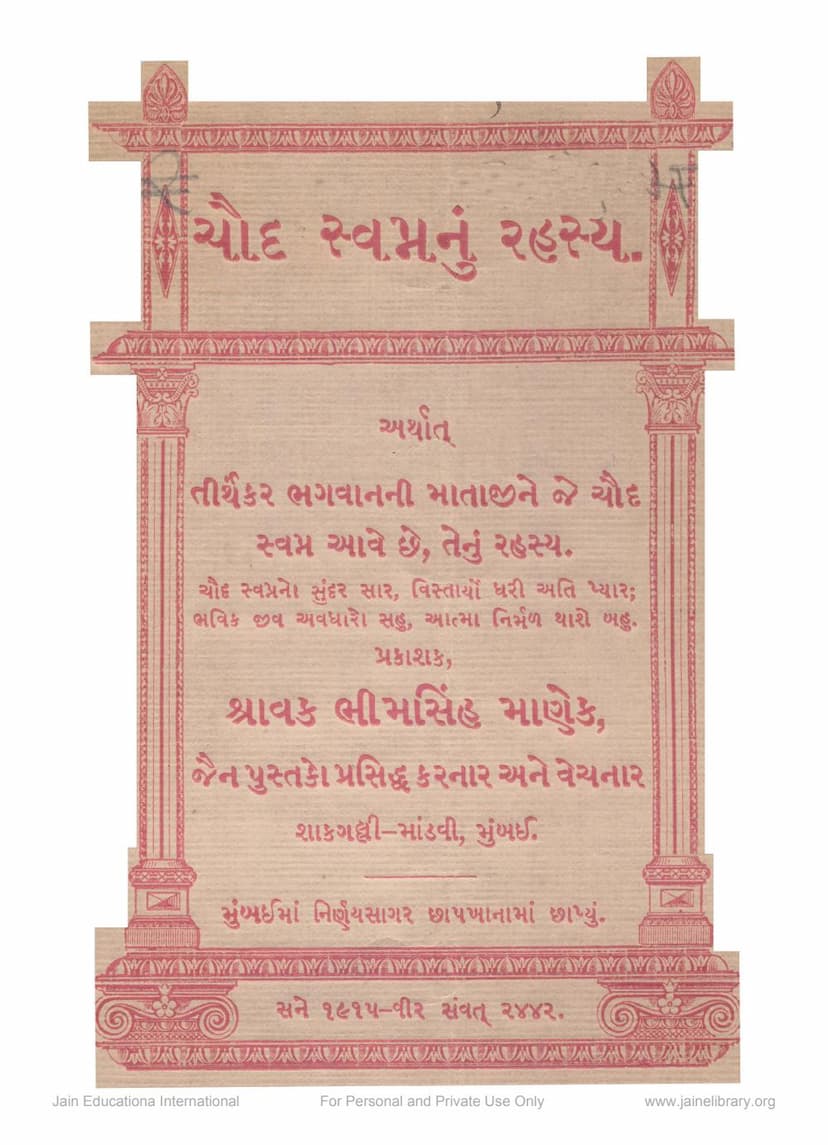 ચૌદ સ્વપ્નનું રહસ્ય.
અર્થાત્
તીર્થંકર ભગવાનની માતાજીને જે ચૌદ
સ્વપ્ન આવે છે, તેનું રહસ્ય.
ચૌદ સ્વપ્નનો સુંદર સાર, વિસ્તાર્યો ધરી અતિ પ્યાર;
ભવિક જીવ અવધારો સહુ, આત્મા નિર્મળ થાશે બહુ.
પ્રકાશક,
શ્રાવક ભીમસિંહ માણેક,
જૈન પુસ્તકો પ્રસિદ્ધ કરનાર અને વેચનાર
શાકગલ્લી–માંડવી, મુંબઈ.
મુંબઈમાં નિર્ણયસાગર છાપખાનામાં છાપ્યું.
સને ૧૯૧૫–વીર સંવત્ ૨૪૪૨.
Jain Educationa International For Personal and Private Use Only www.jainelibrary.org